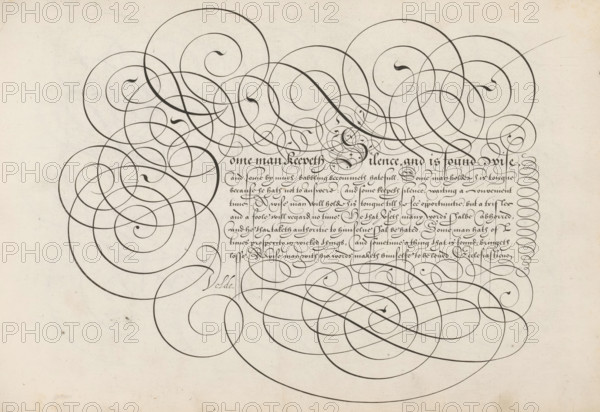 Some man keepeth Silence, and is found wise,
and some by much babbling becommeth hatefull. Some man holdeth his tongue
because he hath not to answere: and some keepeth silence, waiting a convenient
time. A wise man will hold his tongue till he see opportunitie: but a trifler
and a foole will regard no time. He that useth many words shalbe abhorred,
and he that taketh autoritie to himselfe shal be hated. Some man hath oft
times prosperity in wicked things, and sometime a thing that is found, bringeth
losse. A wise man with his words maketh himselfe to be loved. Ecclesiasticus,
Velde.
PHOTO 12